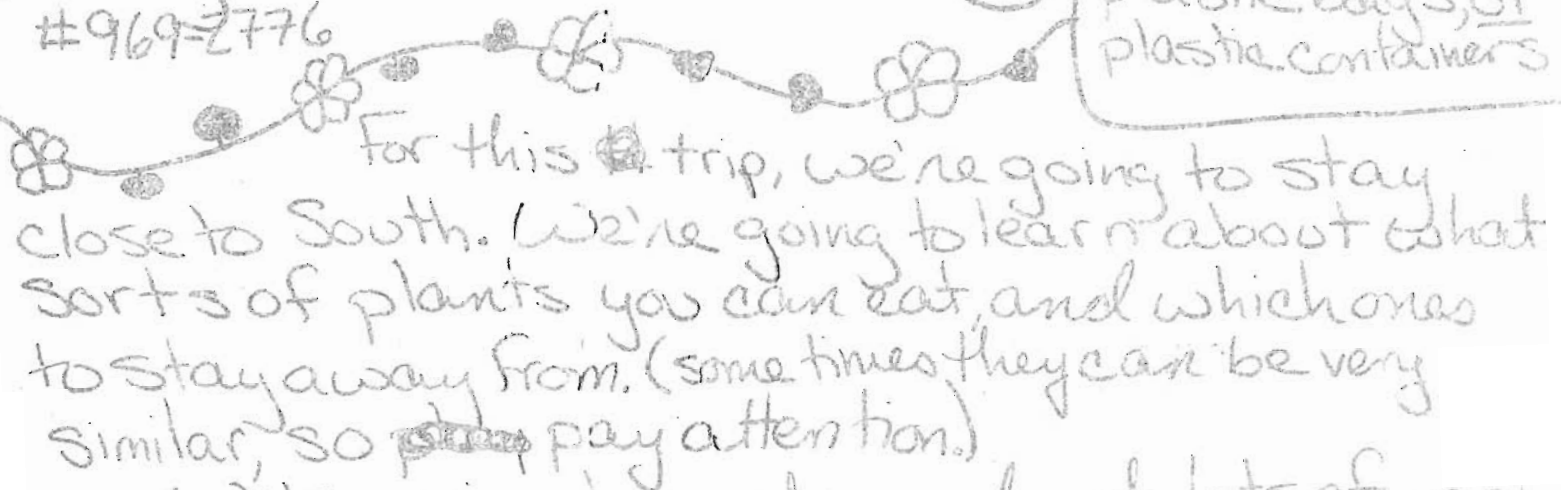 #969-2776
plastic bags, or
plastic containers
For this trip, we're going to stay
close to South. (We're going to learn about what
sorts of plants you can eat, and which ones
to stay away from. (some times they can be very
similar, so pay attention.)